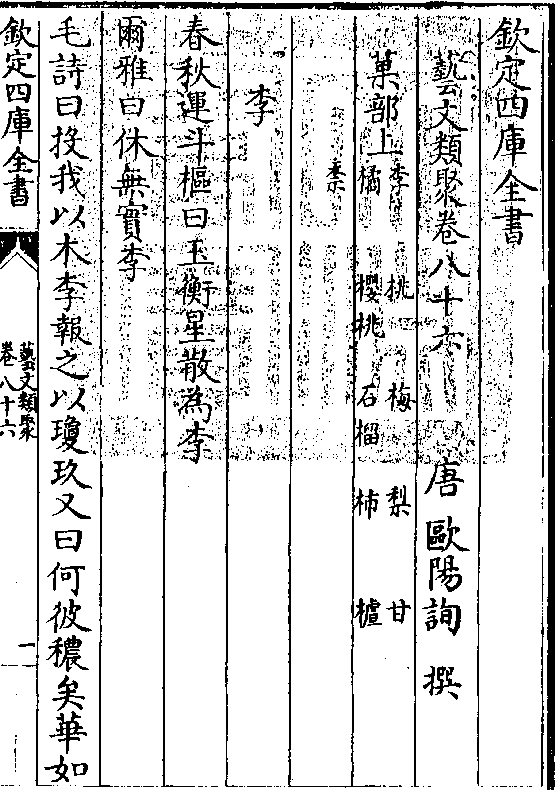 欽定四庫全書
藝文類聚卷八十六
唐 歐陽詢 撰
菓部上
李 桃 梅 梨 甘
橘 櫻桃 石榴 柿 樝
柰
李
春秋運斗樞曰玉衡星散為李
爾雅曰休無實李
毛詩曰投我以木李報之以瓊玖又曰何彼穠矣華如
欽定四庫全書
藝文類聚
卷八十六
一